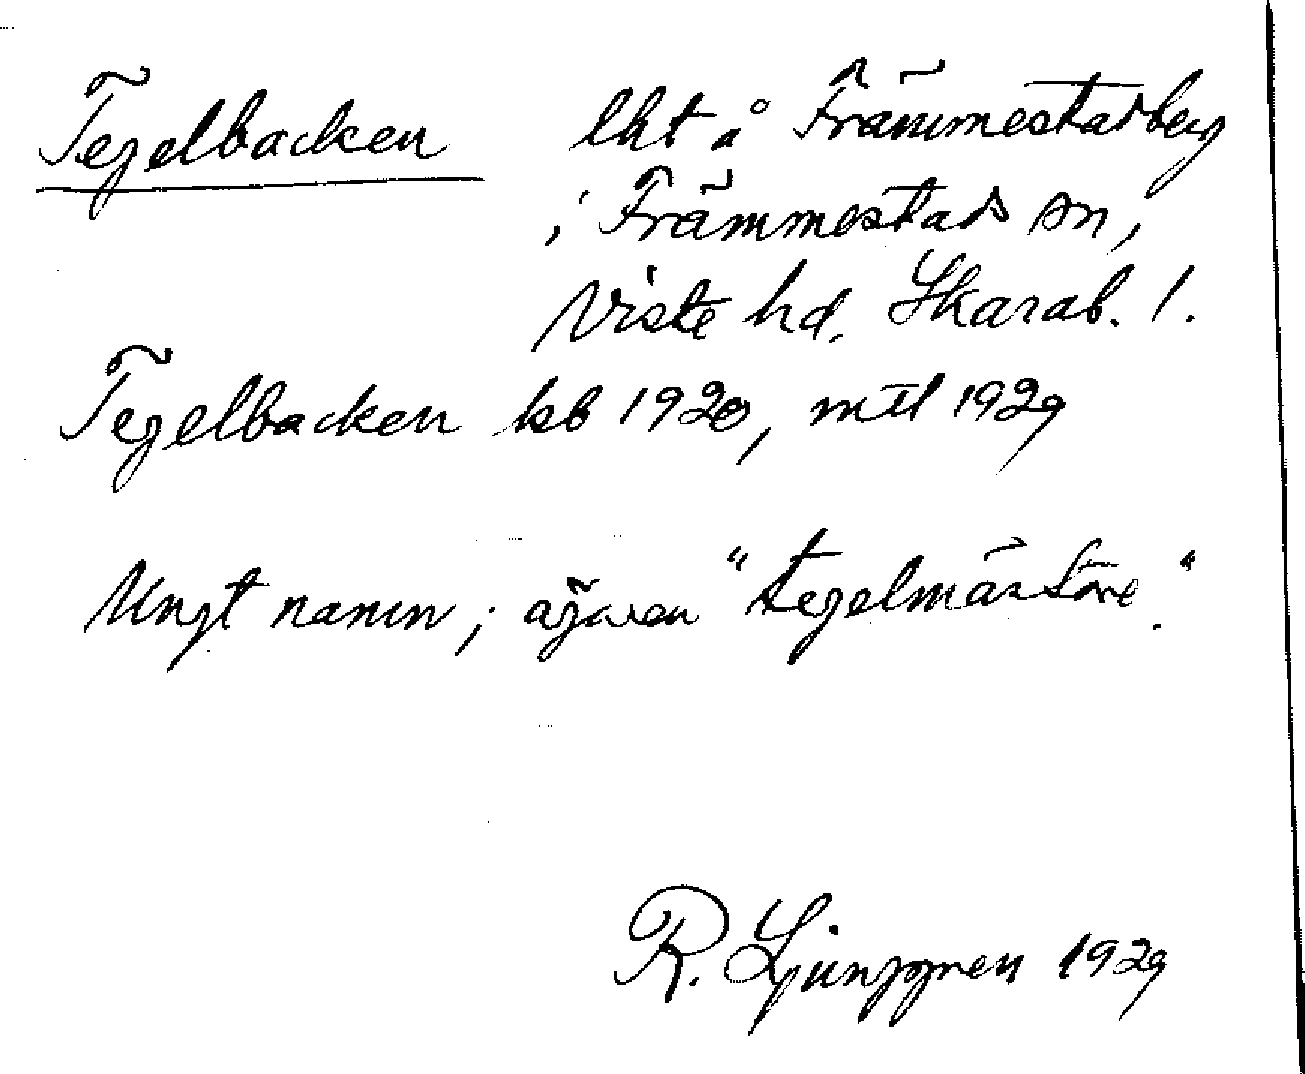 Tegelbacken lht å Främmestadberg
i Främmestads sn,
Viste hd. Skarab. l.
Tegelbacken kb 1920, mtl 1929
Ungt namn; ägaren "tegelmästare".
R. Ljunggren 1929